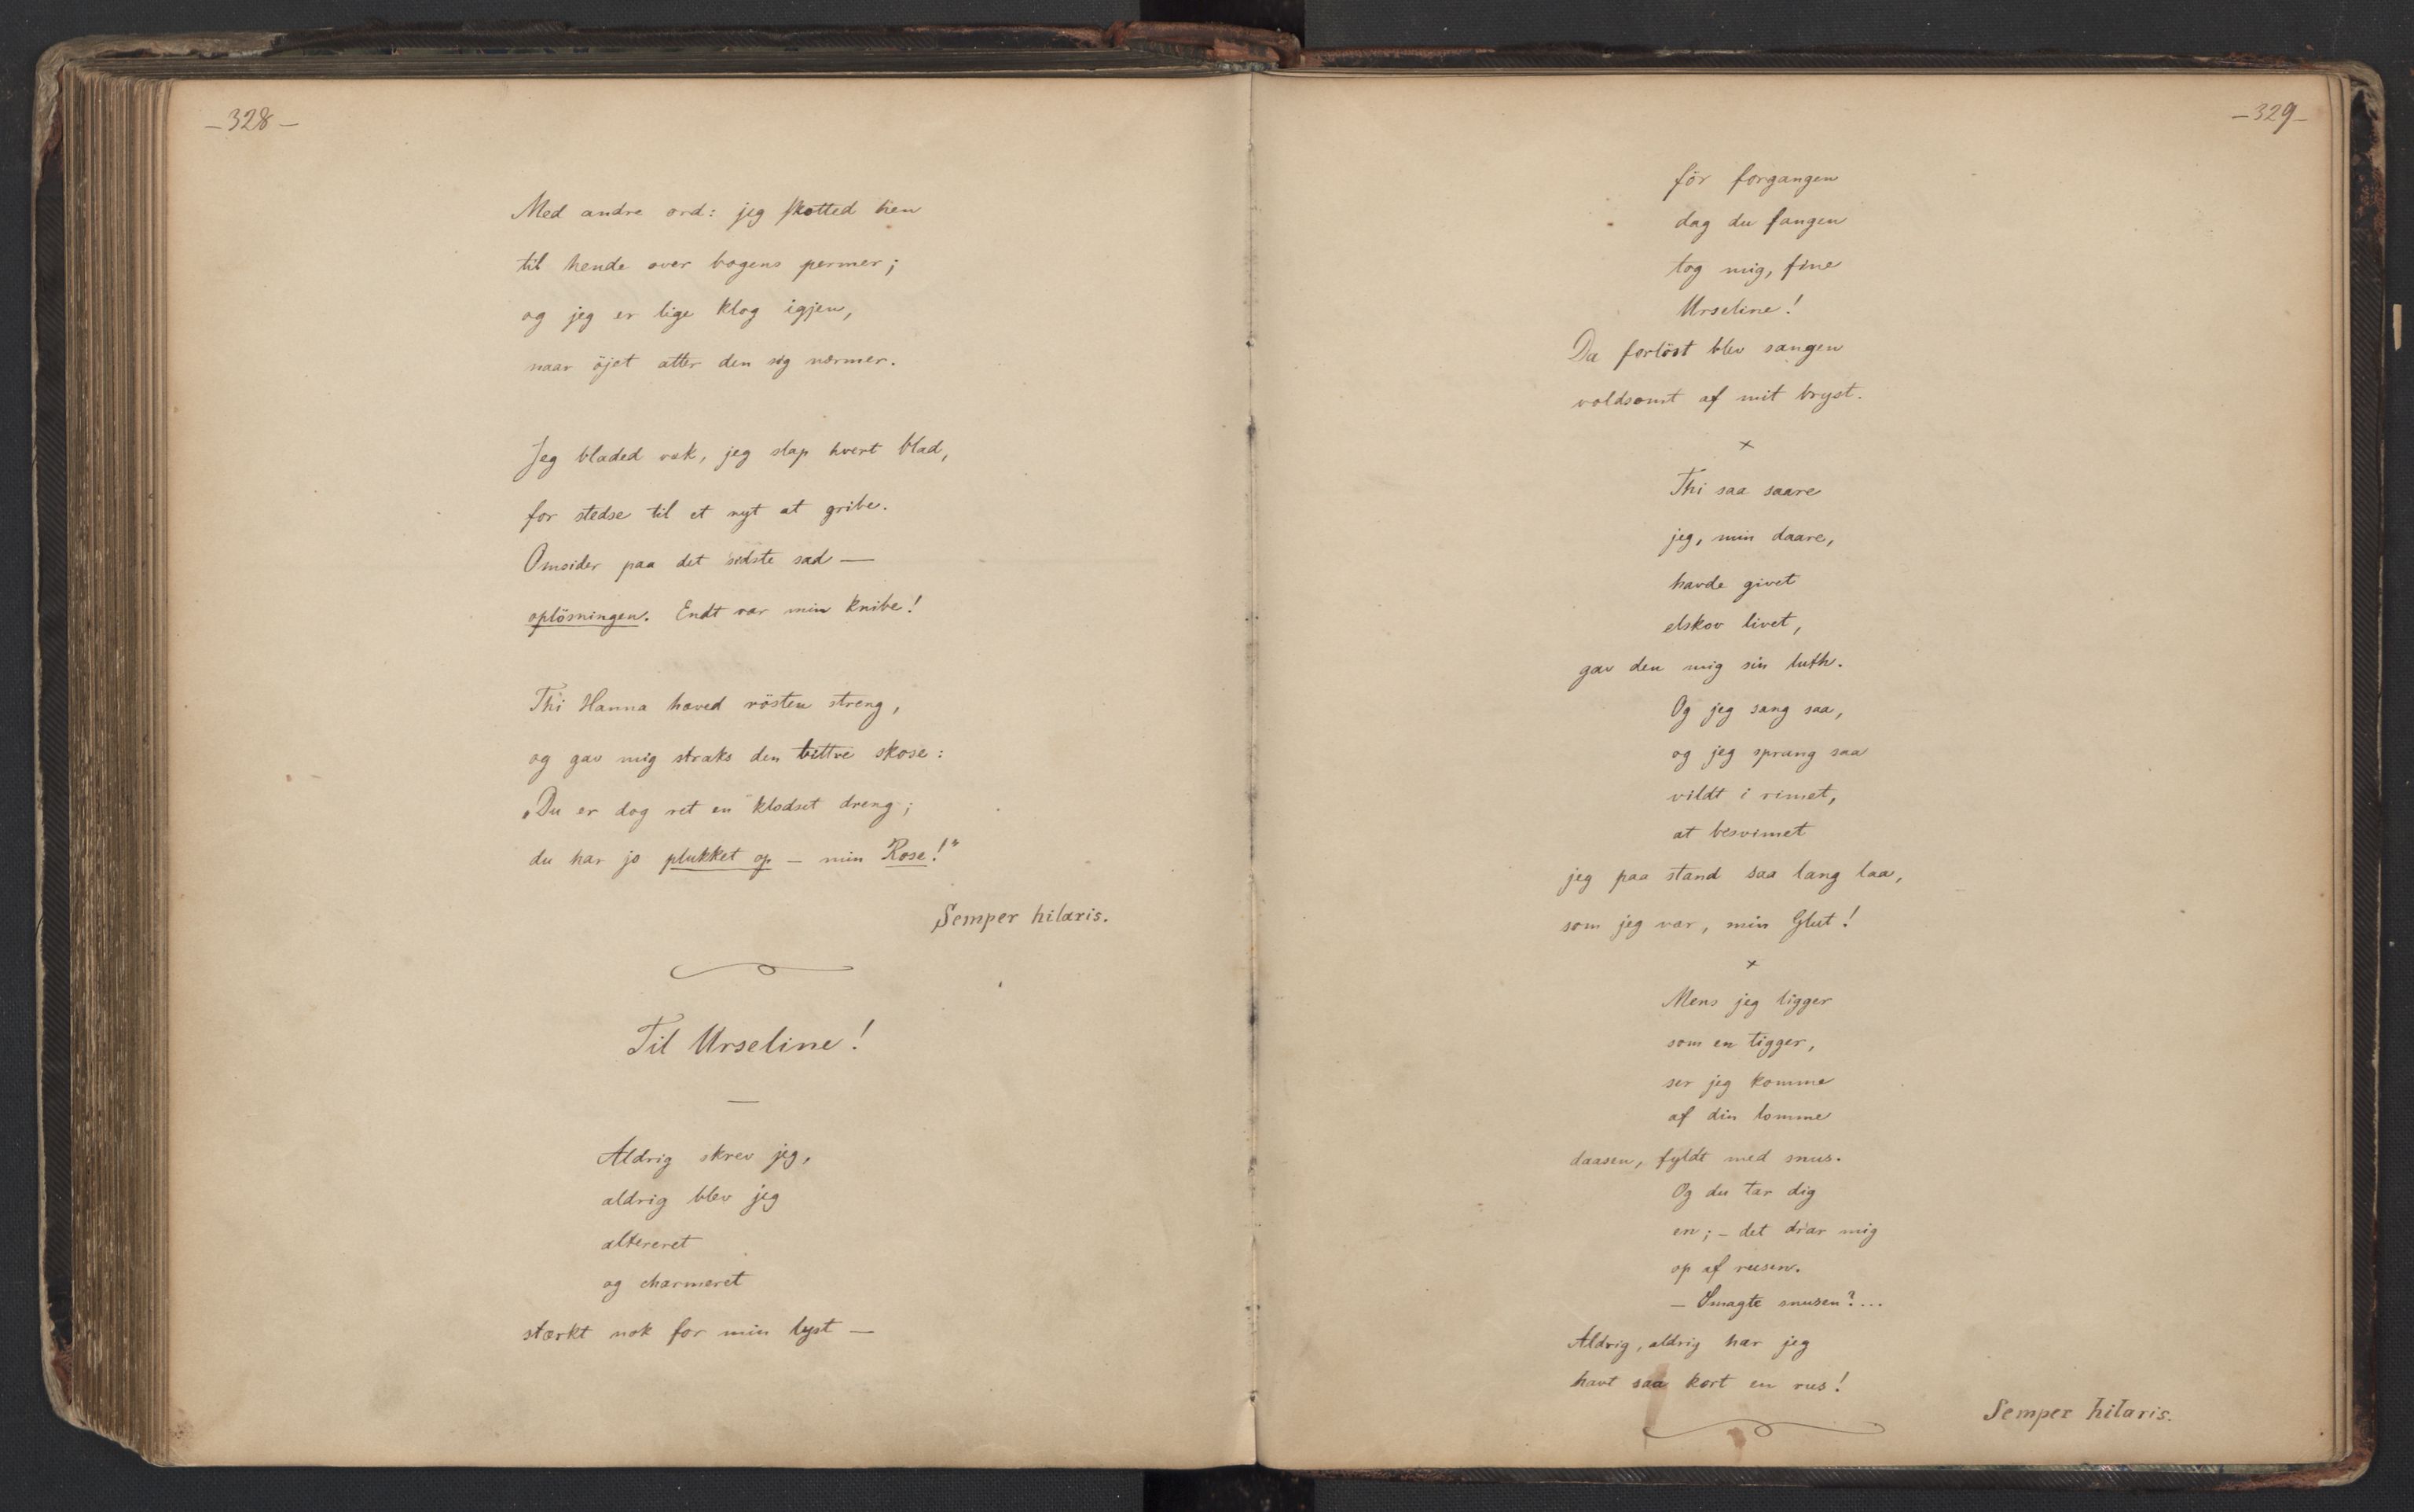 —328—
Med andre ord: jeg skotted hen
til hende over bogens permer;
og jeg er lige klog igjen,
naar öjet atter den sig nærmer.
Jeg bladed væk, jeg slap hvert blad,
for stedse til et nyt at gribe.
Omsider paa det sidste sad —
oplösningen. Endt var min knibe!
Thi Hanna hæved rösten streng,
og gav mig straks den bittre skose:
„Du er dog ret en klodset dreng;
du har jo plukket op — min Rose!"
Semper hilaris.
Til Urseline!
—
Aldrig skrev jeg,
aldrig blev jeg
altereret
og charmeret
stærkt nok for min lyst —
—329—
för forgangen
dag du fangen
tog mig, fine
Urseline!
Da forlöst blev sangen
voldsomt af mit bryst.
×
Thi saa saare
jeg, min daare,
havde givet
elskov livet,
gav den mig sin luth.
Og jeg sang saa,
og jeg sprang saa
vildt i rimet,
at besvimet
jeg paa stand saa lang laa,
som jeg var, min Glut!
×
Mens jeg ligger
som en tigger,
ser jeg komme
af din lomme
daasen, fyldt med snus.
Og du tar dig
en; — det drar mig
op af rusen.
— Smagte snusen?...
Aldrig, aldrig har jeg
havt saa kort en rus!
Semper hilaris.